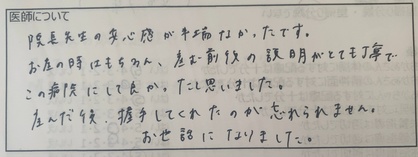 医師について
院長先生の安心感が半端なかったです。
お産の時はもちろん、産む前後の説明がとても丁寧で
この病院にして良かったと思いました。
産んだ後、握手してくれたのが忘れられません。
お世話になりました。